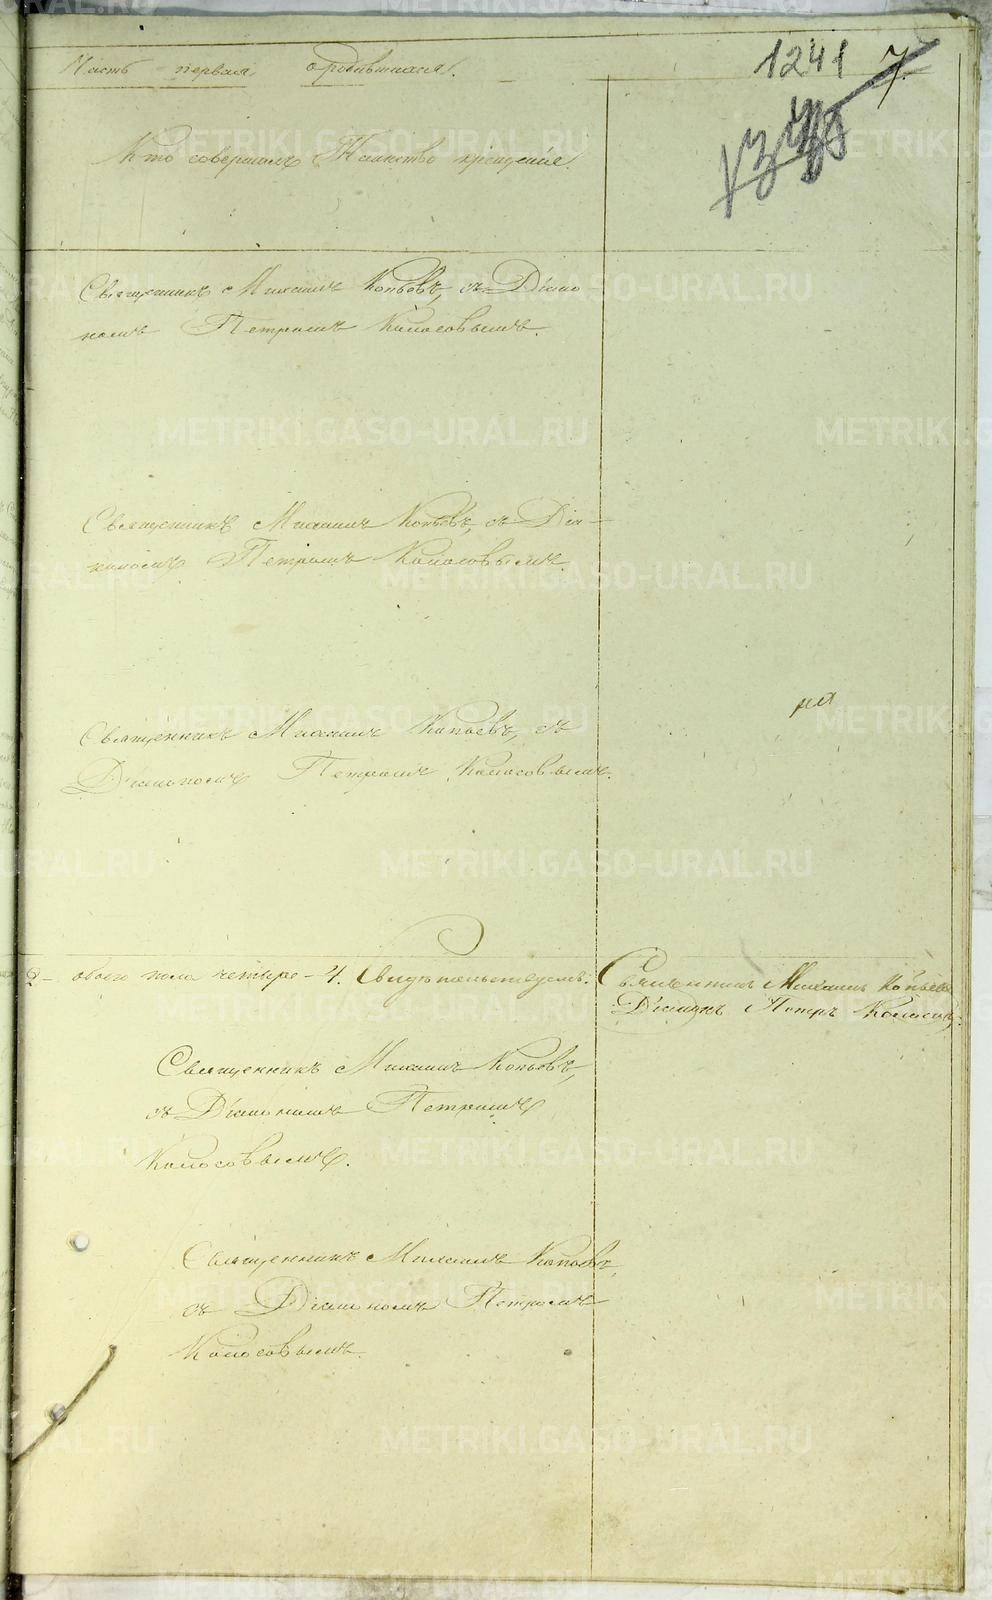 Часть первая о родившихся.
1241 7.
Кто совершалъ Таинство крещенія.
Священникъ Михаилъ Копьевъ, съ Діако
номъ Петромъ Колосовымъ.
Священникъ Михаилъ Копьевъ, съ Діа-
кономъ Петромъ Колосовымъ.
Священникъ Михаилъ Копьевъ, съ
Діакономъ Петромъ Колосовымъ.
2- обоего пола четыре - 4. Свидѣтельствуемъ: Священникъ Михаилъ Копьевъ
Діаконъ Петръ Колосовъ.
Священникъ Михаилъ Копьевъ,
съ Діакономъ Петромъ
Колосовымъ.
Священникъ Михаилъ Копьевъ,
съ Діакономъ Петромъ
Колосовымъ.
METRIKI.GASO-URAL.RU